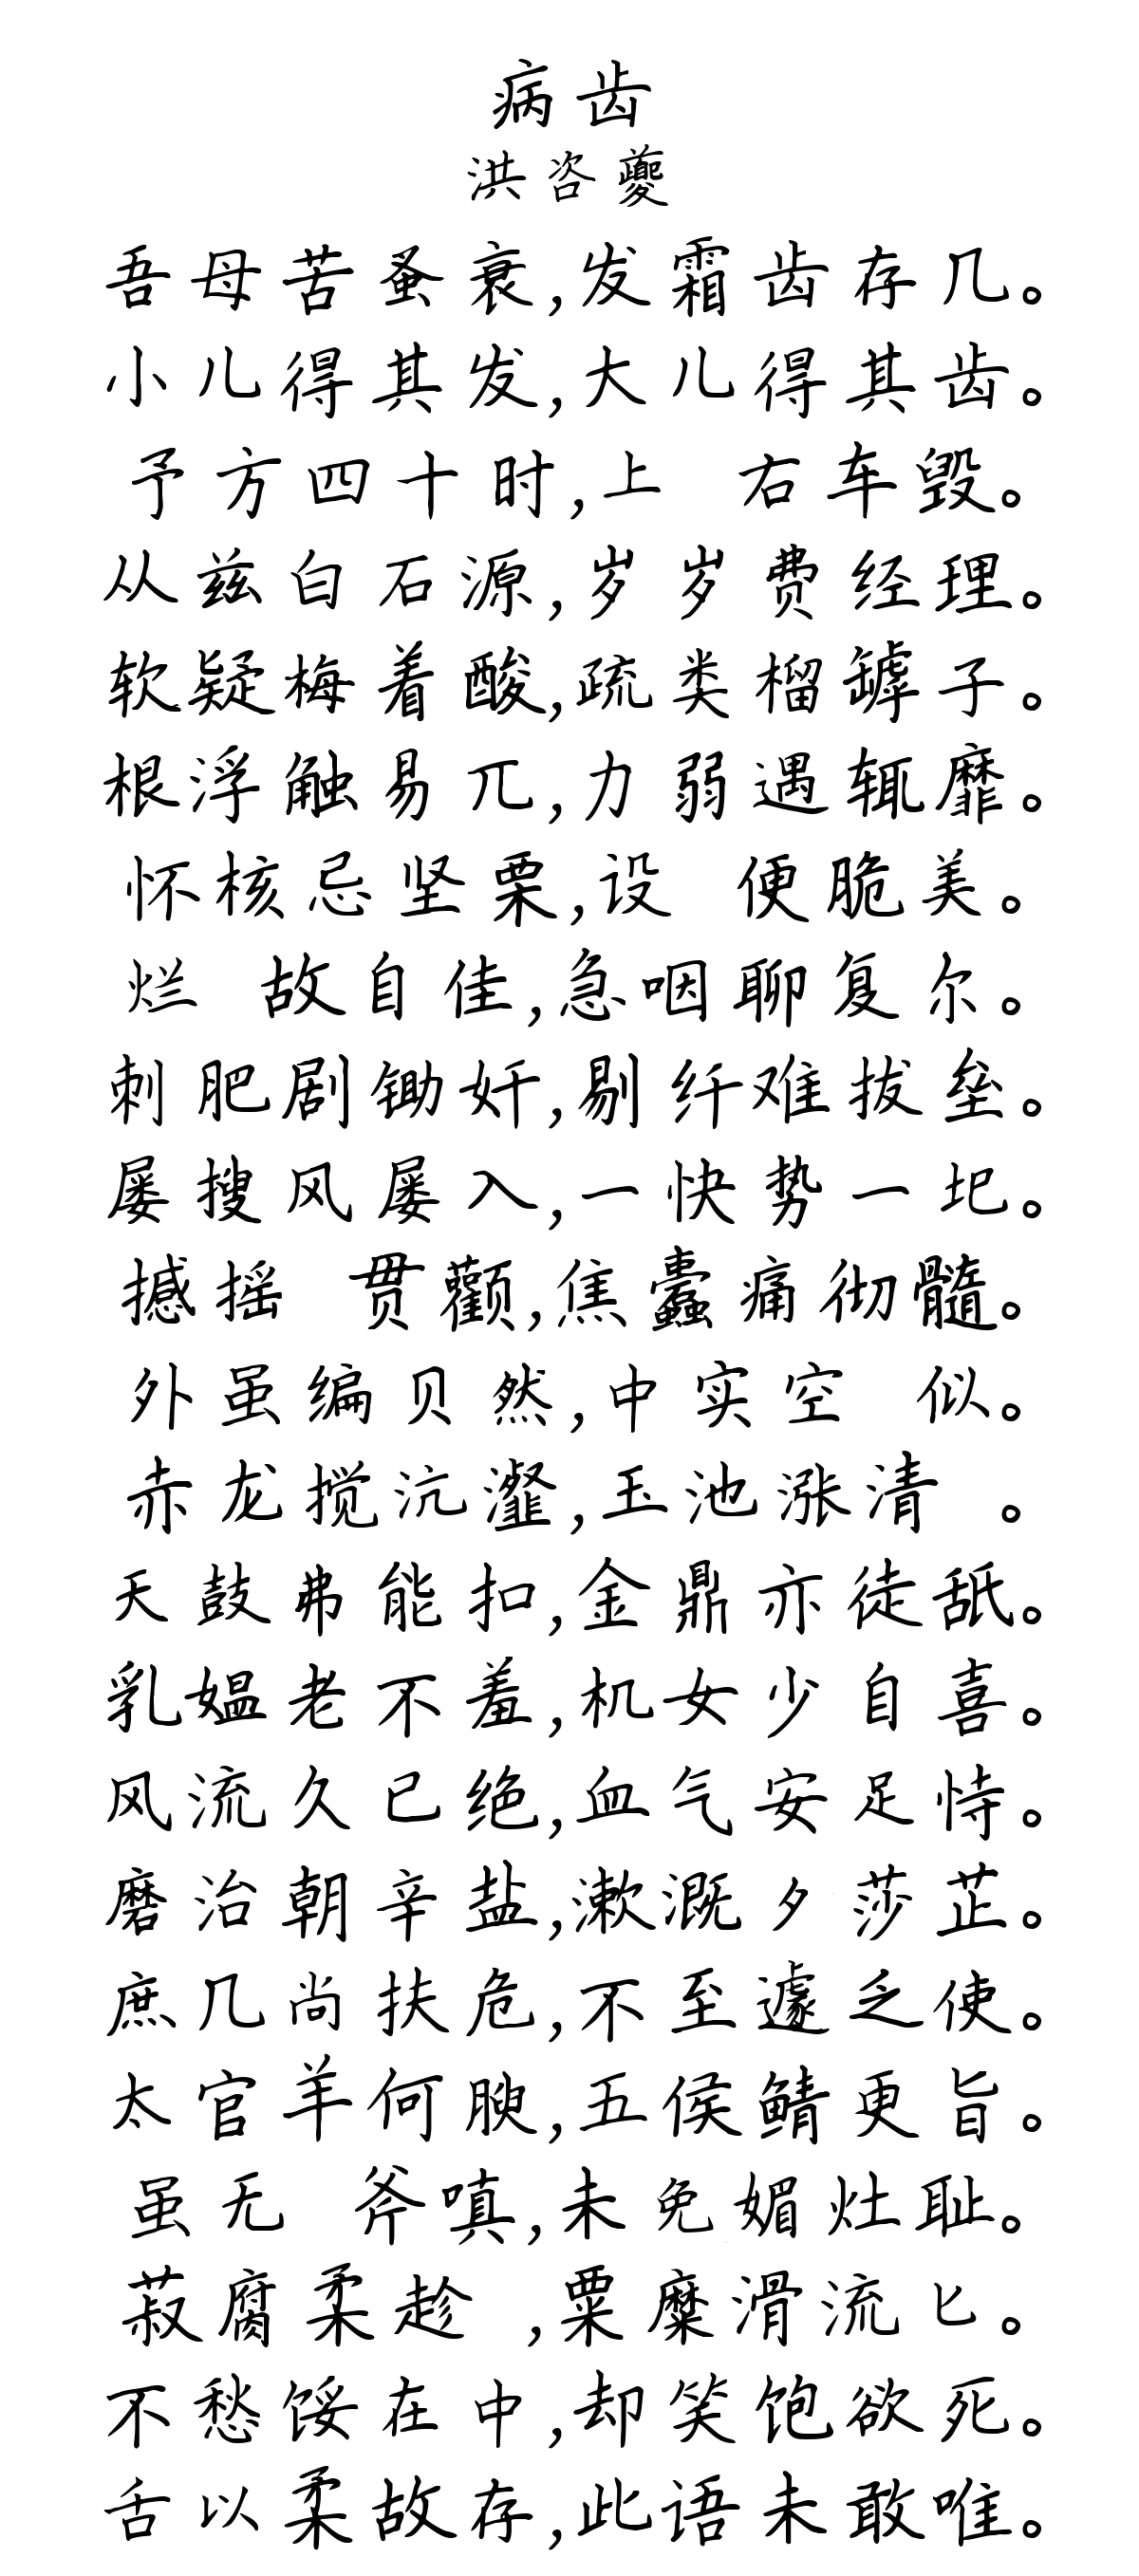 病齿
洪咨夔
吾母苦蚤衰,发霜齿存几。
小儿得其发,大儿得其齿。
予方四十时,上 右车毁。
从兹白石源,岁岁费经理。
软疑梅着酸,疏类榴罅子。
根浮触易兀,力弱遇辄靡。
怀核忌坚栗,设 便脆美。
烂 故自佳,急咽聊复尔。
刺肥剧锄奸,剔纤难拔垒。
屡搜风屡入,一快势一圮。
撼摇 贯颧,焦蠹痛彻髓。
外虽编贝然,中实空 似。
赤龙搅沆瀣,玉池涨清 。
天鼓弗能扣,金鼎亦徒舐。
乳媪老不羞,机女少自喜。
风流久已绝,血气安足恃。
磨治朝辛盐,漱溉夕莎芷。
庶几尚扶危,不至遽乏使。
太官羊何腴,五侯鲭更旨。
虽无 斧嗔,未免媚灶耻。
菽腐柔趁 ,粟糜滑流匕。
不愁馁在中,却笑饱欲死。
舌以柔故存,此语未敢唯。